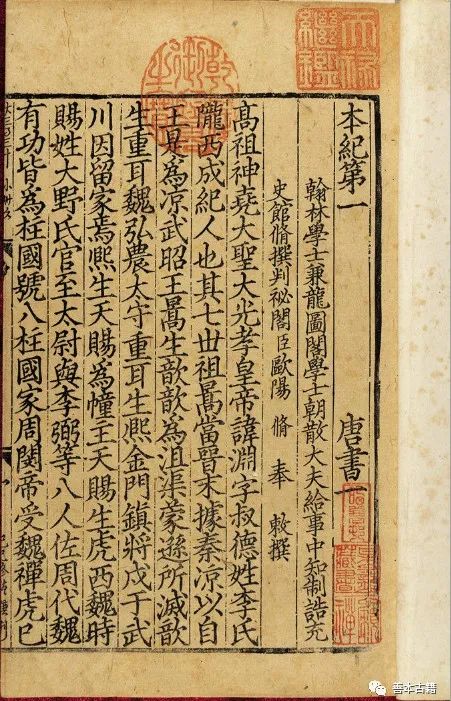 天祿繼鑑
乾隆御覽之寶
本紀第一 唐書一
翰林學士兼龍圖閣學士朝散大夫給事中知制誥充
史館脩撰判祕閣臣歐陽 脩 奉 敕撰
高祖神堯大聖大光孝皇帝諱淵字叔德姓李氏
隴西成紀人也其七世祖暠當晉末據秦涼以自
王是為涼武昭王暠生歆歆為沮渠蒙遜所滅歆
生重耳魏弘農太守重耳生熙金門鎮將戍于武
川因留家焉熙生天賜為幢主天賜生虎西魏時
賜姓大野氏官至太尉與李弼等八人佐周代魏
有功皆為柱國號八柱國家周閔帝受魏禪虎已
善本古籍